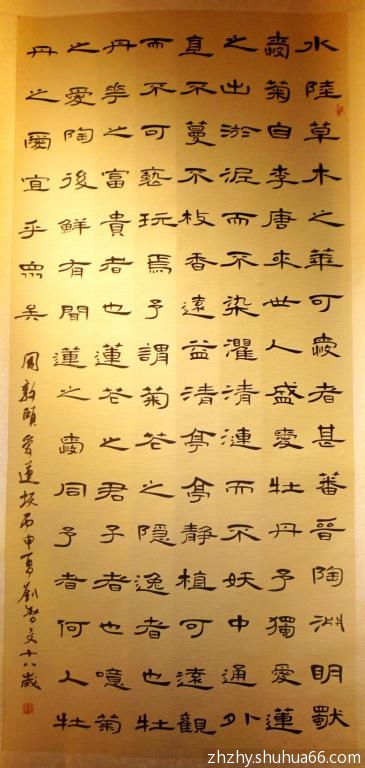 水陸草木之華可愛者甚蕃晉陶淵明獨
愛菊自李唐來世人盛愛牡丹予獨愛蓮
之出淤泥而不染濯清漣而不妖中通外
直不蔓不枝香遠益清亭亭靜植可遠觀
而不可褻玩焉予謂菊花之隱逸者也牡
丹華之富貴者也蓮花之君子者也噫菊
之愛陶後鮮有聞蓮之愛同予者何人牡
丹之愛宜乎眾矣
周敦頤愛蓮說丙申夏劉智文十八歲
zhzhy.shuhua66.com